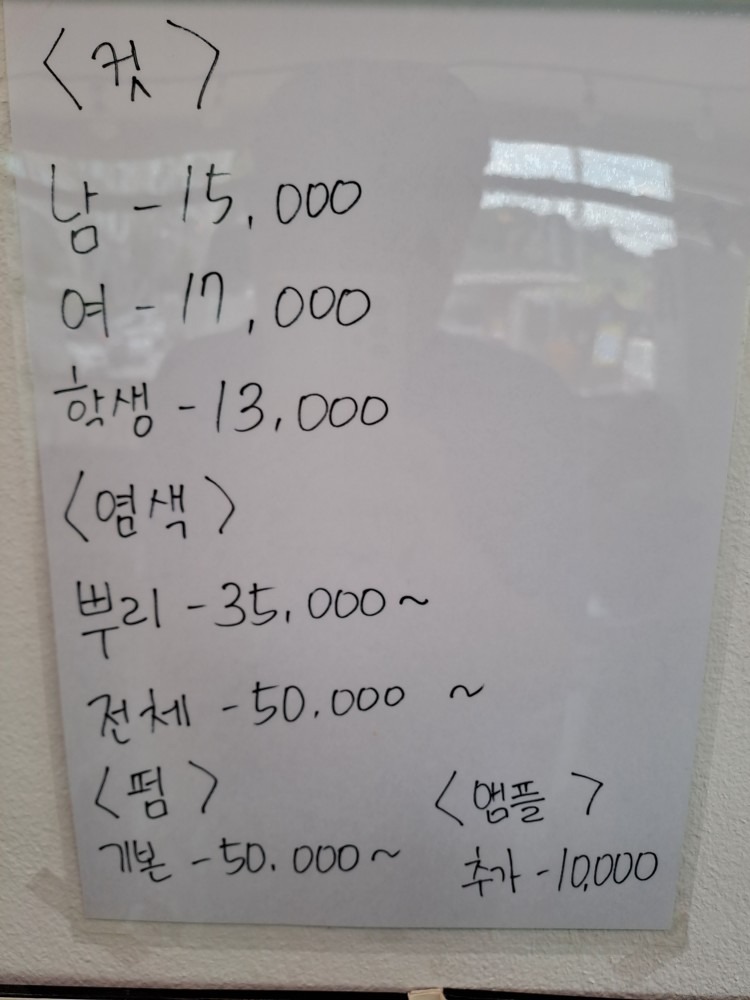 <컷>
남 - 15,000
여 - 17,000
학생 - 13,000
<염색>
뿌리 - 35,000~
전체 - 50.000 ~
<펌>
기본 - 50.000~
<앰플>
추가 - 10,000